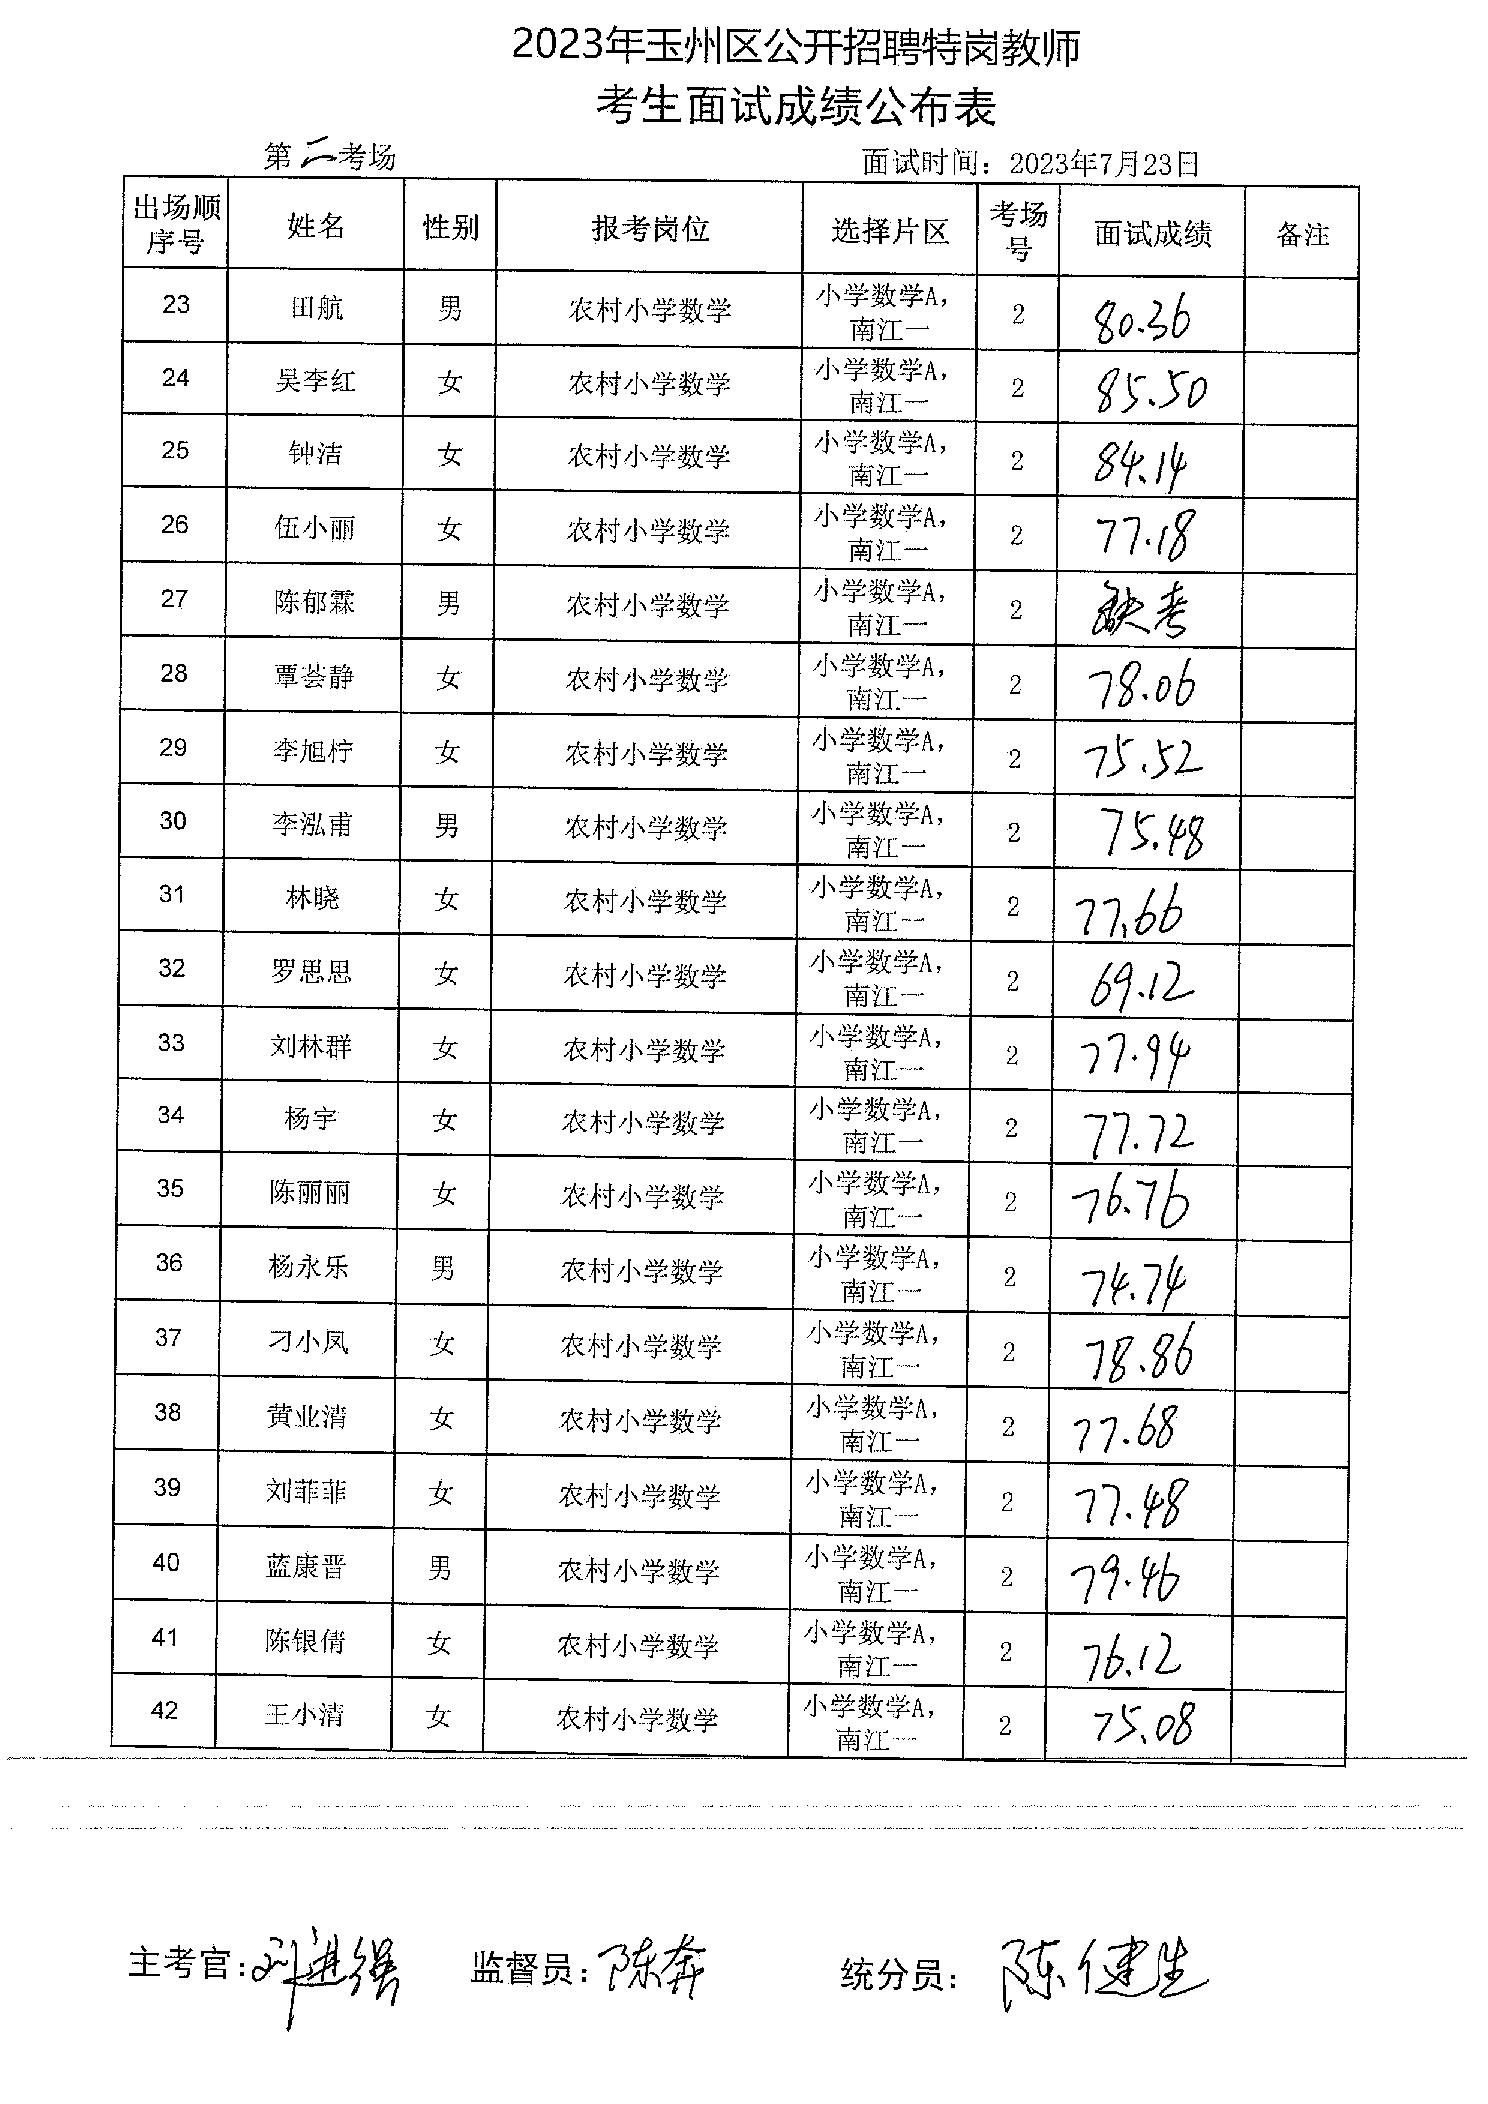 2023年玉州区公开招聘特岗教师
考生面试成绩公布表
第二考场 面试时间：2023年7月23日
出场顺序号 姓名 性别 报考岗位 选择片区 考场号 面试成绩 备注
23 田航 男 农村小学数学 小学数学A，南江一 2 80.36
24 吴李红 女 农村小学数学 小学数学A，南江一 2 85.50
25 钟洁 女 农村小学数学 小学数学A，南江一 2 84.14
26 伍小丽 女 农村小学数学 小学数学A，南江一 2 77.18
27 陈郁霖 男 农村小学数学 小学数学A，南江一 2 缺考
28 覃荟静 女 农村小学数学 小学数学A，南江一 2 78.06
29 李旭柠 女 农村小学数学 小学数学A，南江一 2 75.52
30 李泓甫 男 农村小学数学 小学数学A，南江一 2 75.48
31 林晓 女 农村小学数学 小学数学A，南江一 2 77.66
32 罗思思 女 农村小学数学 小学数学A，南江一 2 69.12
33 刘林群 女 农村小学数学 小学数学A，南江一 2 77.94
34 杨宇 女 农村小学数学 小学数学A，南江一 2 77.72
35 陈丽丽 女 农村小学数学 小学数学A，南江一 2 76.76
36 杨永乐 男 农村小学数学 小学数学A，南江一 2 74.74
37 刁小凤 女 农村小学数学 小学数学A，南江一 2 78.86
38 黄业清 女 农村小学数学 小学数学A，南江一 2 77.68
39 刘菲菲 女 农村小学数学 小学数学A，南江一 2 77.48
40 蓝康晋 男 农村小学数学 小学数学A，南江一 2 79.46
41 陈银倩 女 农村小学数学 小学数学A，南江一 2 76.12
42 王小清 女 农村小学数学 小学数学A，南江一 2 75.08
主考官：刘进强 监督员：陈奔 统分员：陈健生